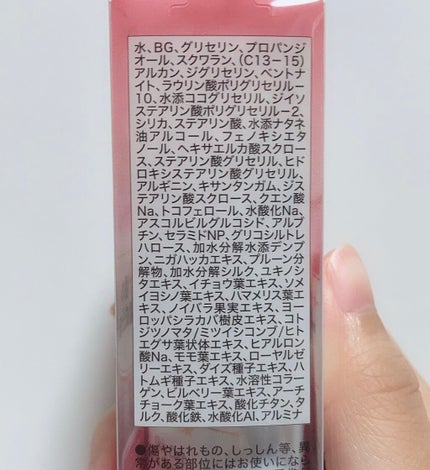 水、BG、グリセリン、プロパンジ
オール、スクワラン、(C13-15)
アルカン、ジグリセリン、ベントナ
イト、ラウリン酸ポリグリセリル-
10、水添ココグリセリル、ジイソ
ステアリン酸ポリグリセリル-2、
シリカ、ステアリン酸、水添ナタネ
油アルコール、フェノキシエタ
ノール、ヘキサエルカ酸スクロー
ス、ステアリン酸グリセリル、ヒド
ロキシステアリン酸グリセリル、
アルギニン、キサンタンガム、ジス
テアリン酸スクロース、クエン酸
Na、トコフェロール、水酸化Na、
アスコルビルグルコシド、アルブ
チン、セラミドNP、グリコシルトレ
ハロース、加水分解水添デンプ
ン、ニガハッカエキス、プルーン分
解物、加水分解シルク、ユキノシ
タエキス、イチョウ葉エキス、ソメ
イヨシノ葉エキス、ハマメリス葉エ
キス、ノイバラ果実エキス、ヨー
ロッパシラカバ樹皮エキス、コト
ジツノマタ/ミツイシコンブ/ヒト
エグサ葉状体エキス、ヒアルロン
酸Na、モモ葉エキス、ローヤルゼ
リーエキス、ダイズ種子エキス、ハ
トムギ種子エキス、水溶性コラー
ゲン、ビルベリー葉エキス、アーチ
チョーク葉エキス、酸化チタン、タ
ルク、酸化鉄、水酸化Al、アルミナ
●傷やはれもの、しっしん等、異
常がある部位にはお使いになら